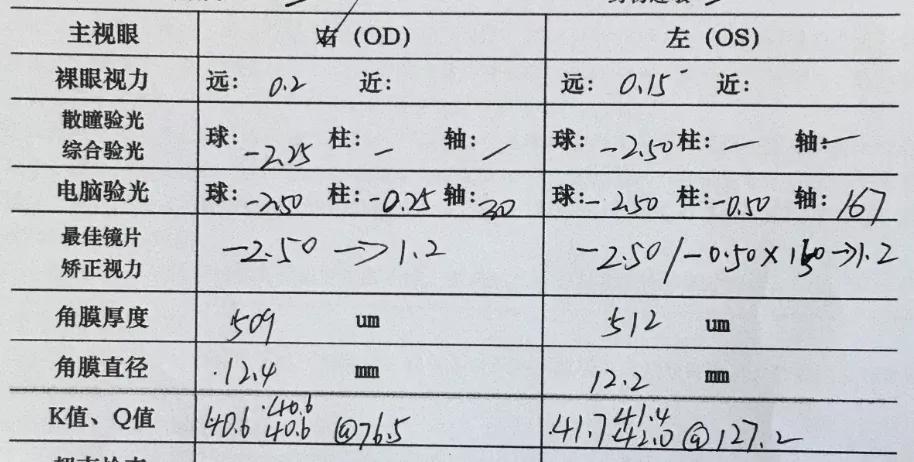 主视眼 右（OD） 左（OS）
裸眼视力 远: 0.2 近: 远: 0.15 近:
散瞳验光
综合验光 球: -2.25 柱: — 轴: — 球: -2.50 柱: — 轴: —
电脑验光 球: -2.50 柱: -0.25 轴: 20 球: -2.50 柱: -0.50 轴: 167
最佳镜片
矫正视力 -2.50 → 1.2 -2.50/-0.50× →1.2
角膜厚度 509 um 512 um
角膜直径 12.4 mm 12.2 mm
K值、Q值 40.6 40.6 40.6 @76.5 41.7 41.4 42.0 @127.2